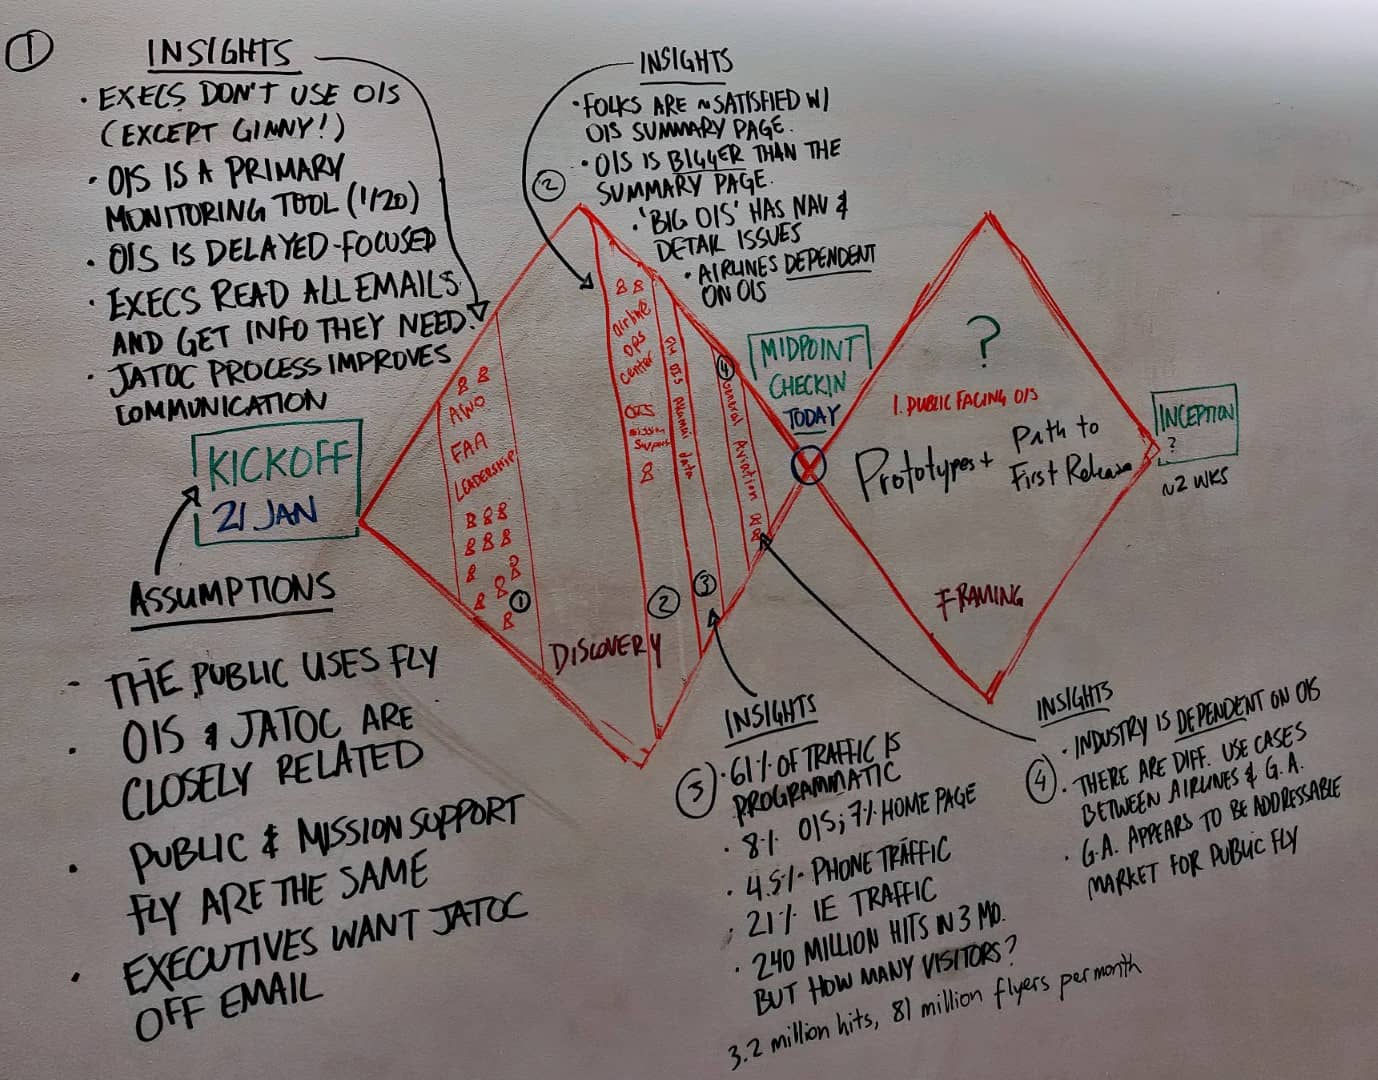 1
INSIGHTS
· EXECS DON'T USE OIS
(EXCEPT GINNY!)
· OIS IS A PRIMARY
MONITORING TOOL (1/20)
· OIS IS DELAYED-FOCUSED
· EXECS READ ALL EMAILS
AND GET INFO THEY NEED.
· JATOC PROCESS IMPROVES
COMMUNICATION
KICKOFF
21 JAN
ASSUMPTIONS
- THE PUBLIC USES FLY
· OIS & JATOC ARE
CLOSELY RELATED
· PUBLIC & MISSION SUPPORT
FLY ARE THE SAME
· EXECUTIVES WANT JATOC
OFF EMAIL
INSIGHTS
· FOLKS ARE ~SATISFIED W/
OIS SUMMARY PAGE.
2
· OIS IS BIGGER THAN THE
SUMMARY PAGE.
· 'BIG OIS' HAS NAV &
DETAIL ISSUES
· AIRLINES DEPENDENT
ON OIS
FAA
LEADERSHIP
1
airline
ops
center
mission
support
2
OIS akamai data
3
4
General Aviation
DISCOVERY
MIDPOINT
CHECKIN
TODAY
?
1. PUBLIC FACING OIS
Prototypes +
Path to
First Release
FRAMING
INCEPTION
?
~2 WKS
INSIGHTS
3
· 61% OF TRAFFIC IS
PROGRAMMATIC
· 8% OIS; 7% HOME PAGE
· 4.5% PHONE TRAFFIC
· 21% IE TRAFFIC
· 240 MILLION HITS IN 3 MO.
BUT HOW MANY VISITORS?
3.2 million hits, 81 million flyers per month
INSIGHTS
4
· INDUSTRY IS DEPENDENT ON OIS
· THERE ARE DIFF. USE CASES
BETWEEN AIRLINES & G.A.
· G.A. APPEARS TO BE ADDRESSABLE
MARKET FOR PUBLIC FLY